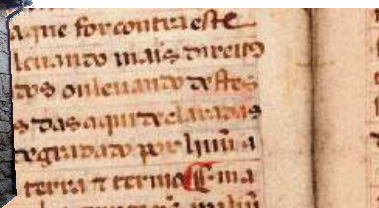 a que for contra este
leuando mais dereito
dos ou leuando destes
s das aqui declaradas
degradado por huũ a
terra ⁊ termo ¶ ma